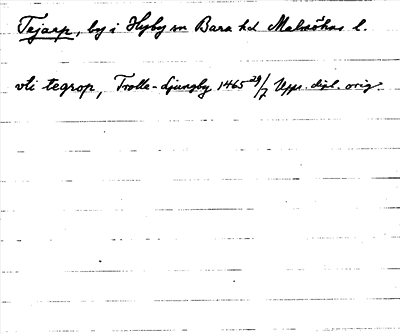 Tejarp, by i Hyby sn Bara hd Malmöhus l.
vti tegrop, Trolle-Ljungby 1465 29/7 Upps. dipl. orig.